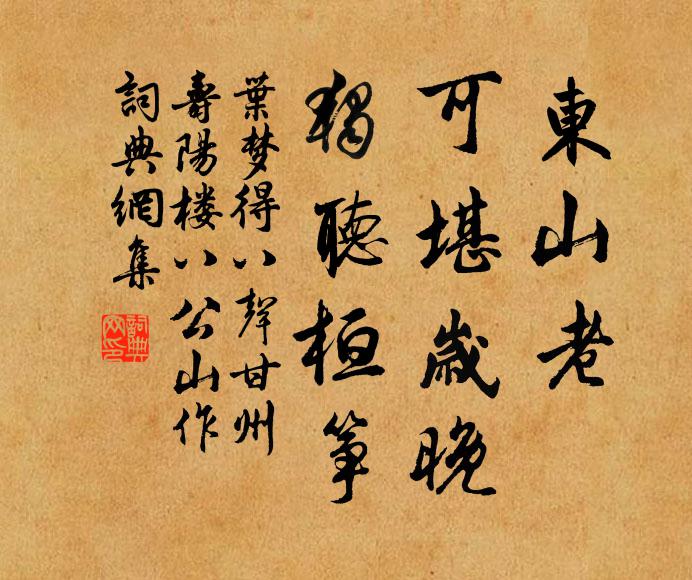 東山老
可堪歲晚
獨聽桓筝
葉梦得八聲甘州
壽陽楼八公山作
詞典網集
詞典
网印